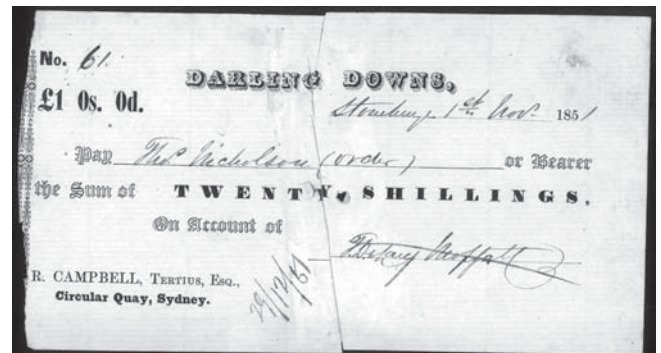 No. 61.
DARLING DOWNS,
£1 0s. 0d.
Stonehenge 1st Novr. 1851
Pay Thos Nicholson (order) or Bearer
the Sum of TWENTY SHILLINGS,
On Account of
Moffatt
R. CAMPBELL, TERTIUS, ESQ.,
Circular Quay, Sydney.
29/12/51